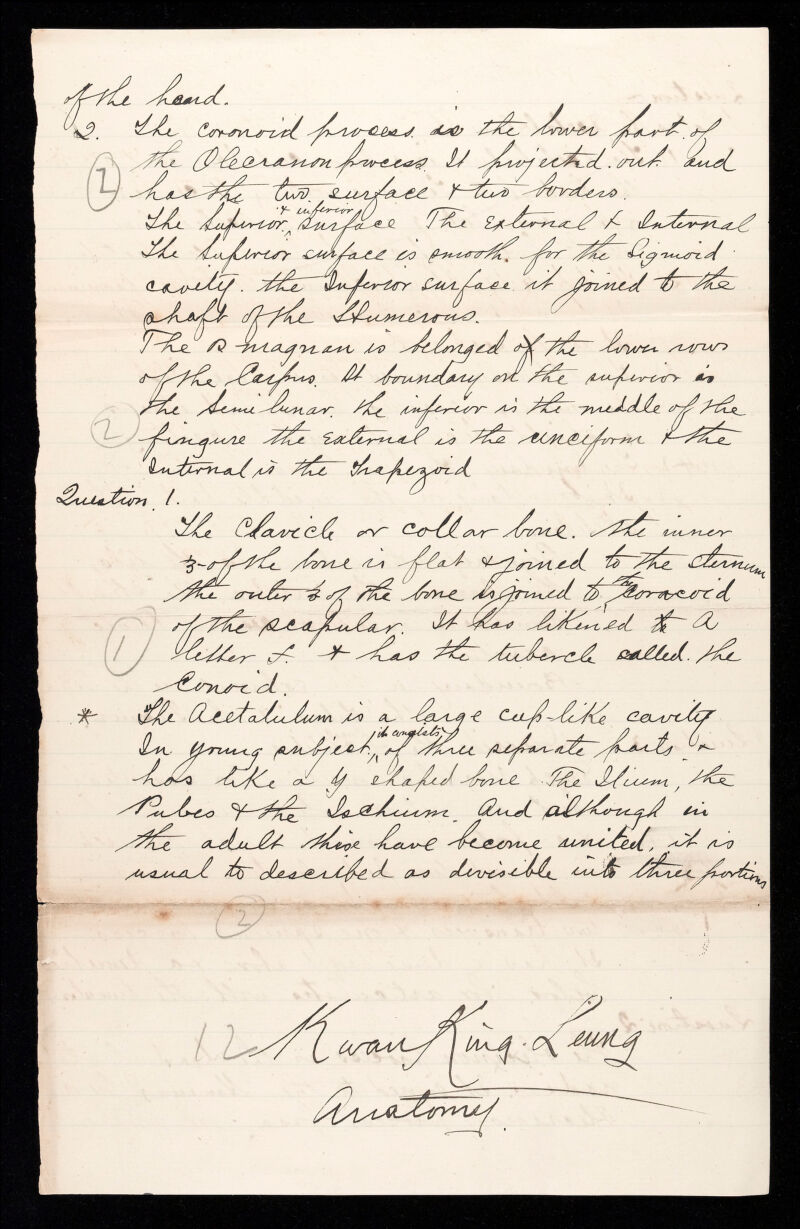 of the heard.
2. The coronoid process is the lower part of
2 the Olecranon process. It projected out and
has the two surface & two borders.
& inferior
The Superior surface The External & Internal
The Superior surface is smooth. for the Sigmoid
cavity. the Inferior surface it joined to the
shaft of the Humerous.
The os magnan is belonged of the lower rows
of the Carpus. It boundary on the superior is
the Semilunar. the inferior is the middle of the
2 fingure the External is the unciform & the
Internal is the Trapezoid
Question. 1.
The Clavicle or collar bone. the inner
of the bone is flat & joined to the sternum
the outer of the bone is joined to the coracoid
of the scapular. It has likened to A
1 letter f. & has the tubercle called. the
Conoid.
* The Acetabulum is a large cup-like cavity
In young subject, of three separate parts &
has like a Y shaped bone The Ilium, the
Pubes & the Ischium. And although in
the adult these have become united, it is
usual to described as divisible into three portions
2
12
Kwan King-Leung
Anatomy.